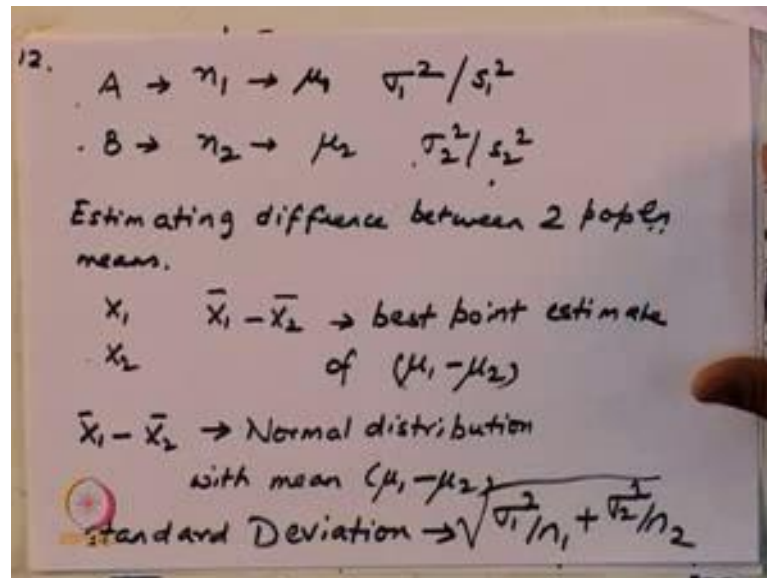 12.
A → n₁ → μ₁ σ₁²/s₁²
B → n₂ → μ₂ σ₂²/s₂²
Estimating diffrence between 2 popln
means.
x₁ x̄₁ – x̄₂ → best point estimate
x₂ of (μ₁–μ₂)
x̄₁ – x̄₂ → Normal distribution
with mean (μ₁–μ₂)
Standard Deviation → √σ₁²/n₁ + σ₂²/n₂